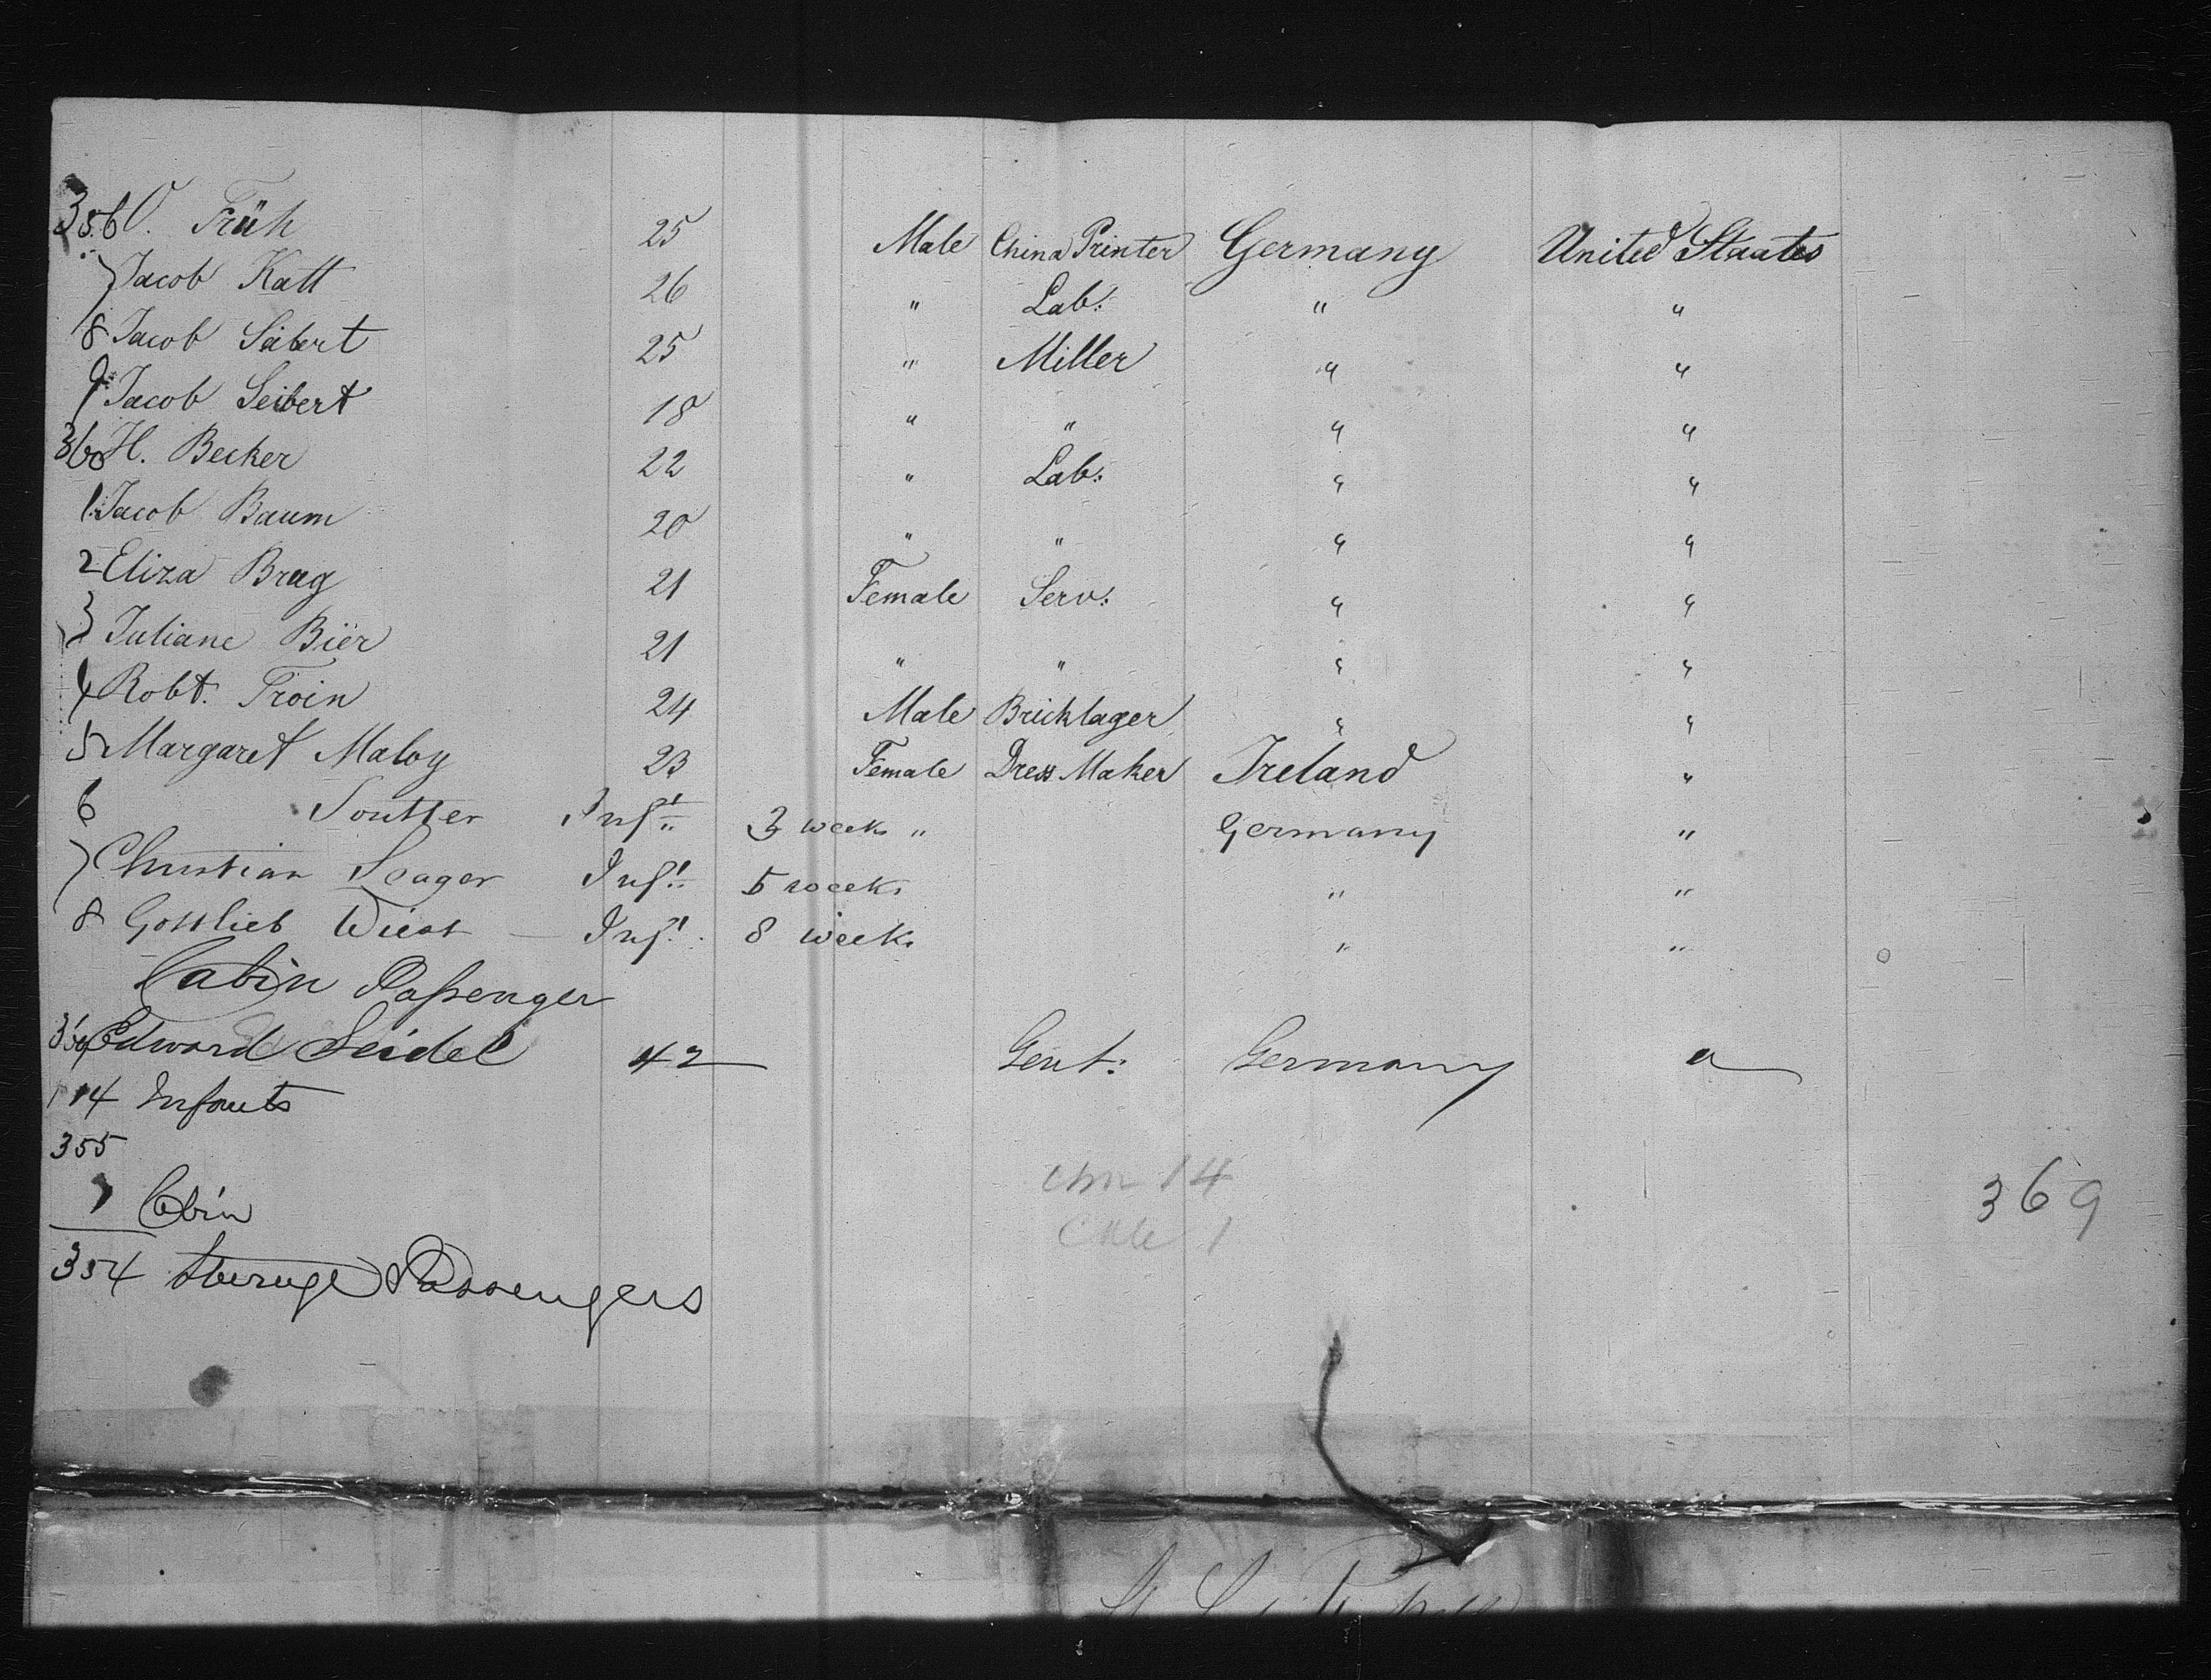 356 O. Früh 25 Male China Printer Germany United Staates
7 Jacob Katt 26 " Lab: " "
8 Jacob Seibert 25 " Miller " "
9 Jacob Seibert 18 " " " "
360 H. Becker 22 " Lab: " "
1 Jacob Baum 20 " " " "
2 Eliza Brug 21 Female Serv: " "
3 Juliane Biër 21 " " " "
4 Robt. Troin 24 Male Bricklager " "
5 Margaret Maloy 23 Female Dress Maker Ireland "
6 Soutter Inft 3 weeks " Germany "
7 Christian Seager Inft 5 weeks " "
8 Gottlieb Wiest Inft 8 weeks " "
Cabin Passenger
369 Edward Seidel 42 Gent: Germany "
14 Infants
355
1 Cbin
354 Steruge Passengers
14
1
369